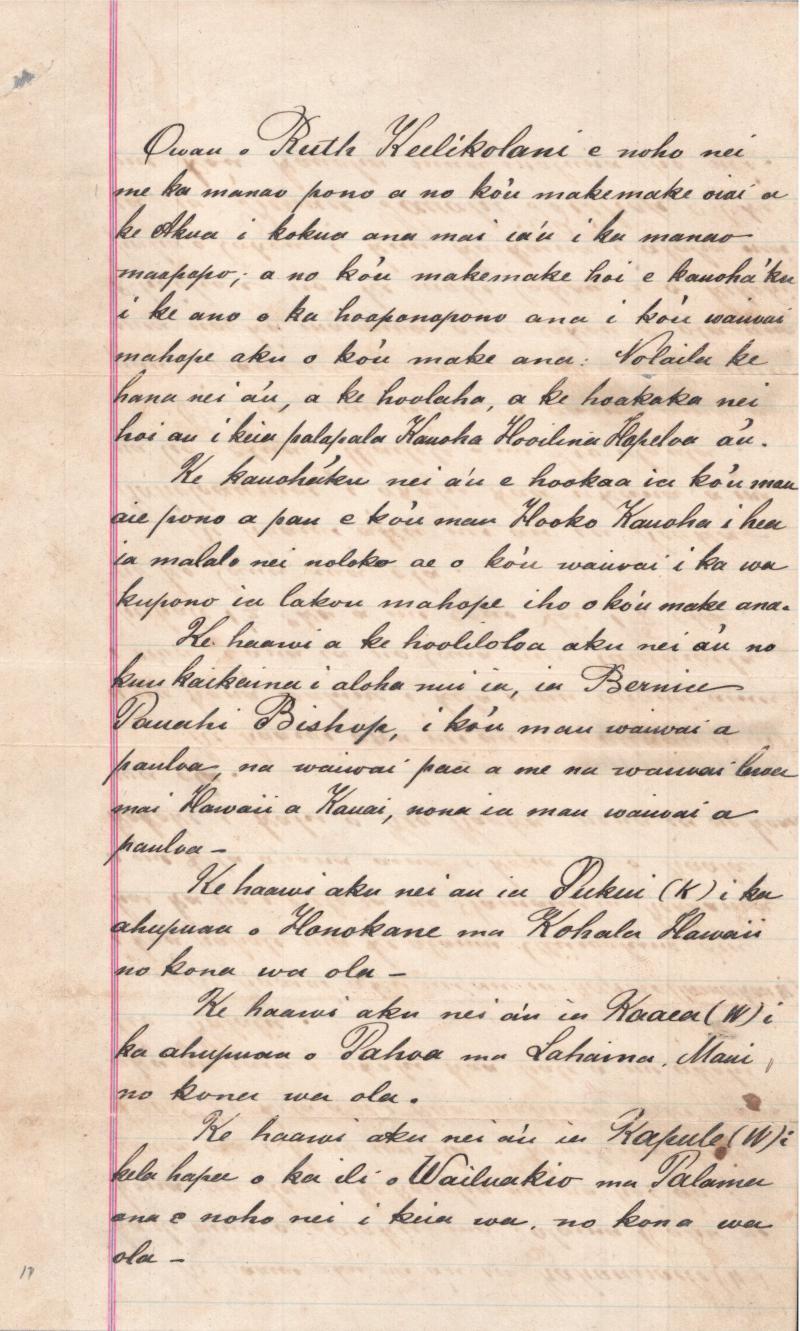 Owau o Ruth Keelikolani e noho nei
me ka manao pono a no ko'u makemake oiai o
ke Akua i kokua ana mai ia'u i ka manao
maopopo; a no ko'u makemake hoi e kauoha'ku
i ke ano o ka hooponopono ana i ko'u waiwai
mahope aku o ko'u make ana: Nolaila ke
hana nei a'u, a ke hoolaha, a ke hoakaka nei
hoi au i keia palapala Kauoha Hooilina Hopeloa a'u.
Ke kauoha'ku nei a'u e hookaa ia ko'u mau
aie pono a pau e ko'u mau Hooko Kauoha i hea
ia malalo nei noloko ae o ko'u waiwai i ka wa
kupono ia lakou mahope iho o ko'u make ana.
Ke haawi a ke hoolilo loa aku nei a'u no
kuu kaikaina i aloha nui ia, ia Bernice
Pauahi Bishop, i ko'u mau waiwai a
pauloa, na waiwai paa a me na waiwai lewa
mai Hawaii a Kauai, nona ia mau waiwai a
pauloa –
Ke haawi aku nei au ia Pukui (K) i ka
ahupuaa o Honokane ma Kohala Hawaii
no kona wa ola –
Ke haawi aku nei a'u ia Kaaea (W) i
ka ahupuaa o Pahoa ma Lahaina, Maui,
no kona wa ola.
Ke haawi aku nei a'u ia Kapule (W) i
kela hapa o ka ili o Wailuakio ma Palama
ana e noho nei i keia wa, no kona wa
ola –